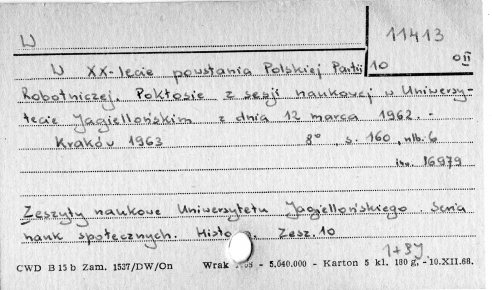 W
11413
W XX-lecie powstania Polskiej Partii
10 OII
Robotniczej. Pokłosie z sesji naukowej w Uniwersy-
tecie Jagiellońskim z dnia 12 marca 1962. -
Kraków 1963 8° , s. 160, nlb. 6
16979
Zeszyty naukowe Uniwersytetu Jagiellońskiego Seria
nauk społecznych. Zesz. 10
CWD B 15 b Zam. 1537/DW/On Wrak - 5.040.000 - Karton 5 kl. 180 g, - 10.XII.68.